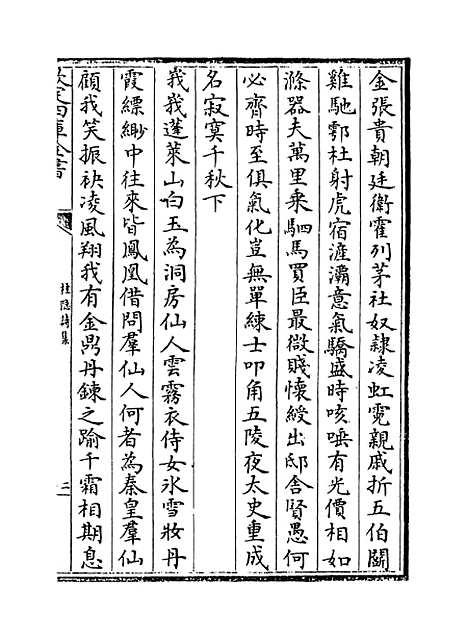 金張貴朝廷衛霍列茅社奴隸凌虹霓親戚折五伯鬭
雞馳鄠杜射虎宿滻灞意氣驕盛時咳唾有光價相如
滌器夫萬里乘駟馬買臣最微賤懷綬出邸舍賢愚何
必齊時至俱氣化豈無單練士叩角五陵夜太史重成
名寂寞千秋下
峩峩蓬萊山白玉為洞房仙人雲霧衣侍女氷雪妝丹
霞縹緲中往來皆鳳凰借問羣仙人何者為秦皇羣仙
顧我笑振袂凌風翔我有金鼎丹鍊之踰千霜相期息
欽定四庫全書
桂隱詩集